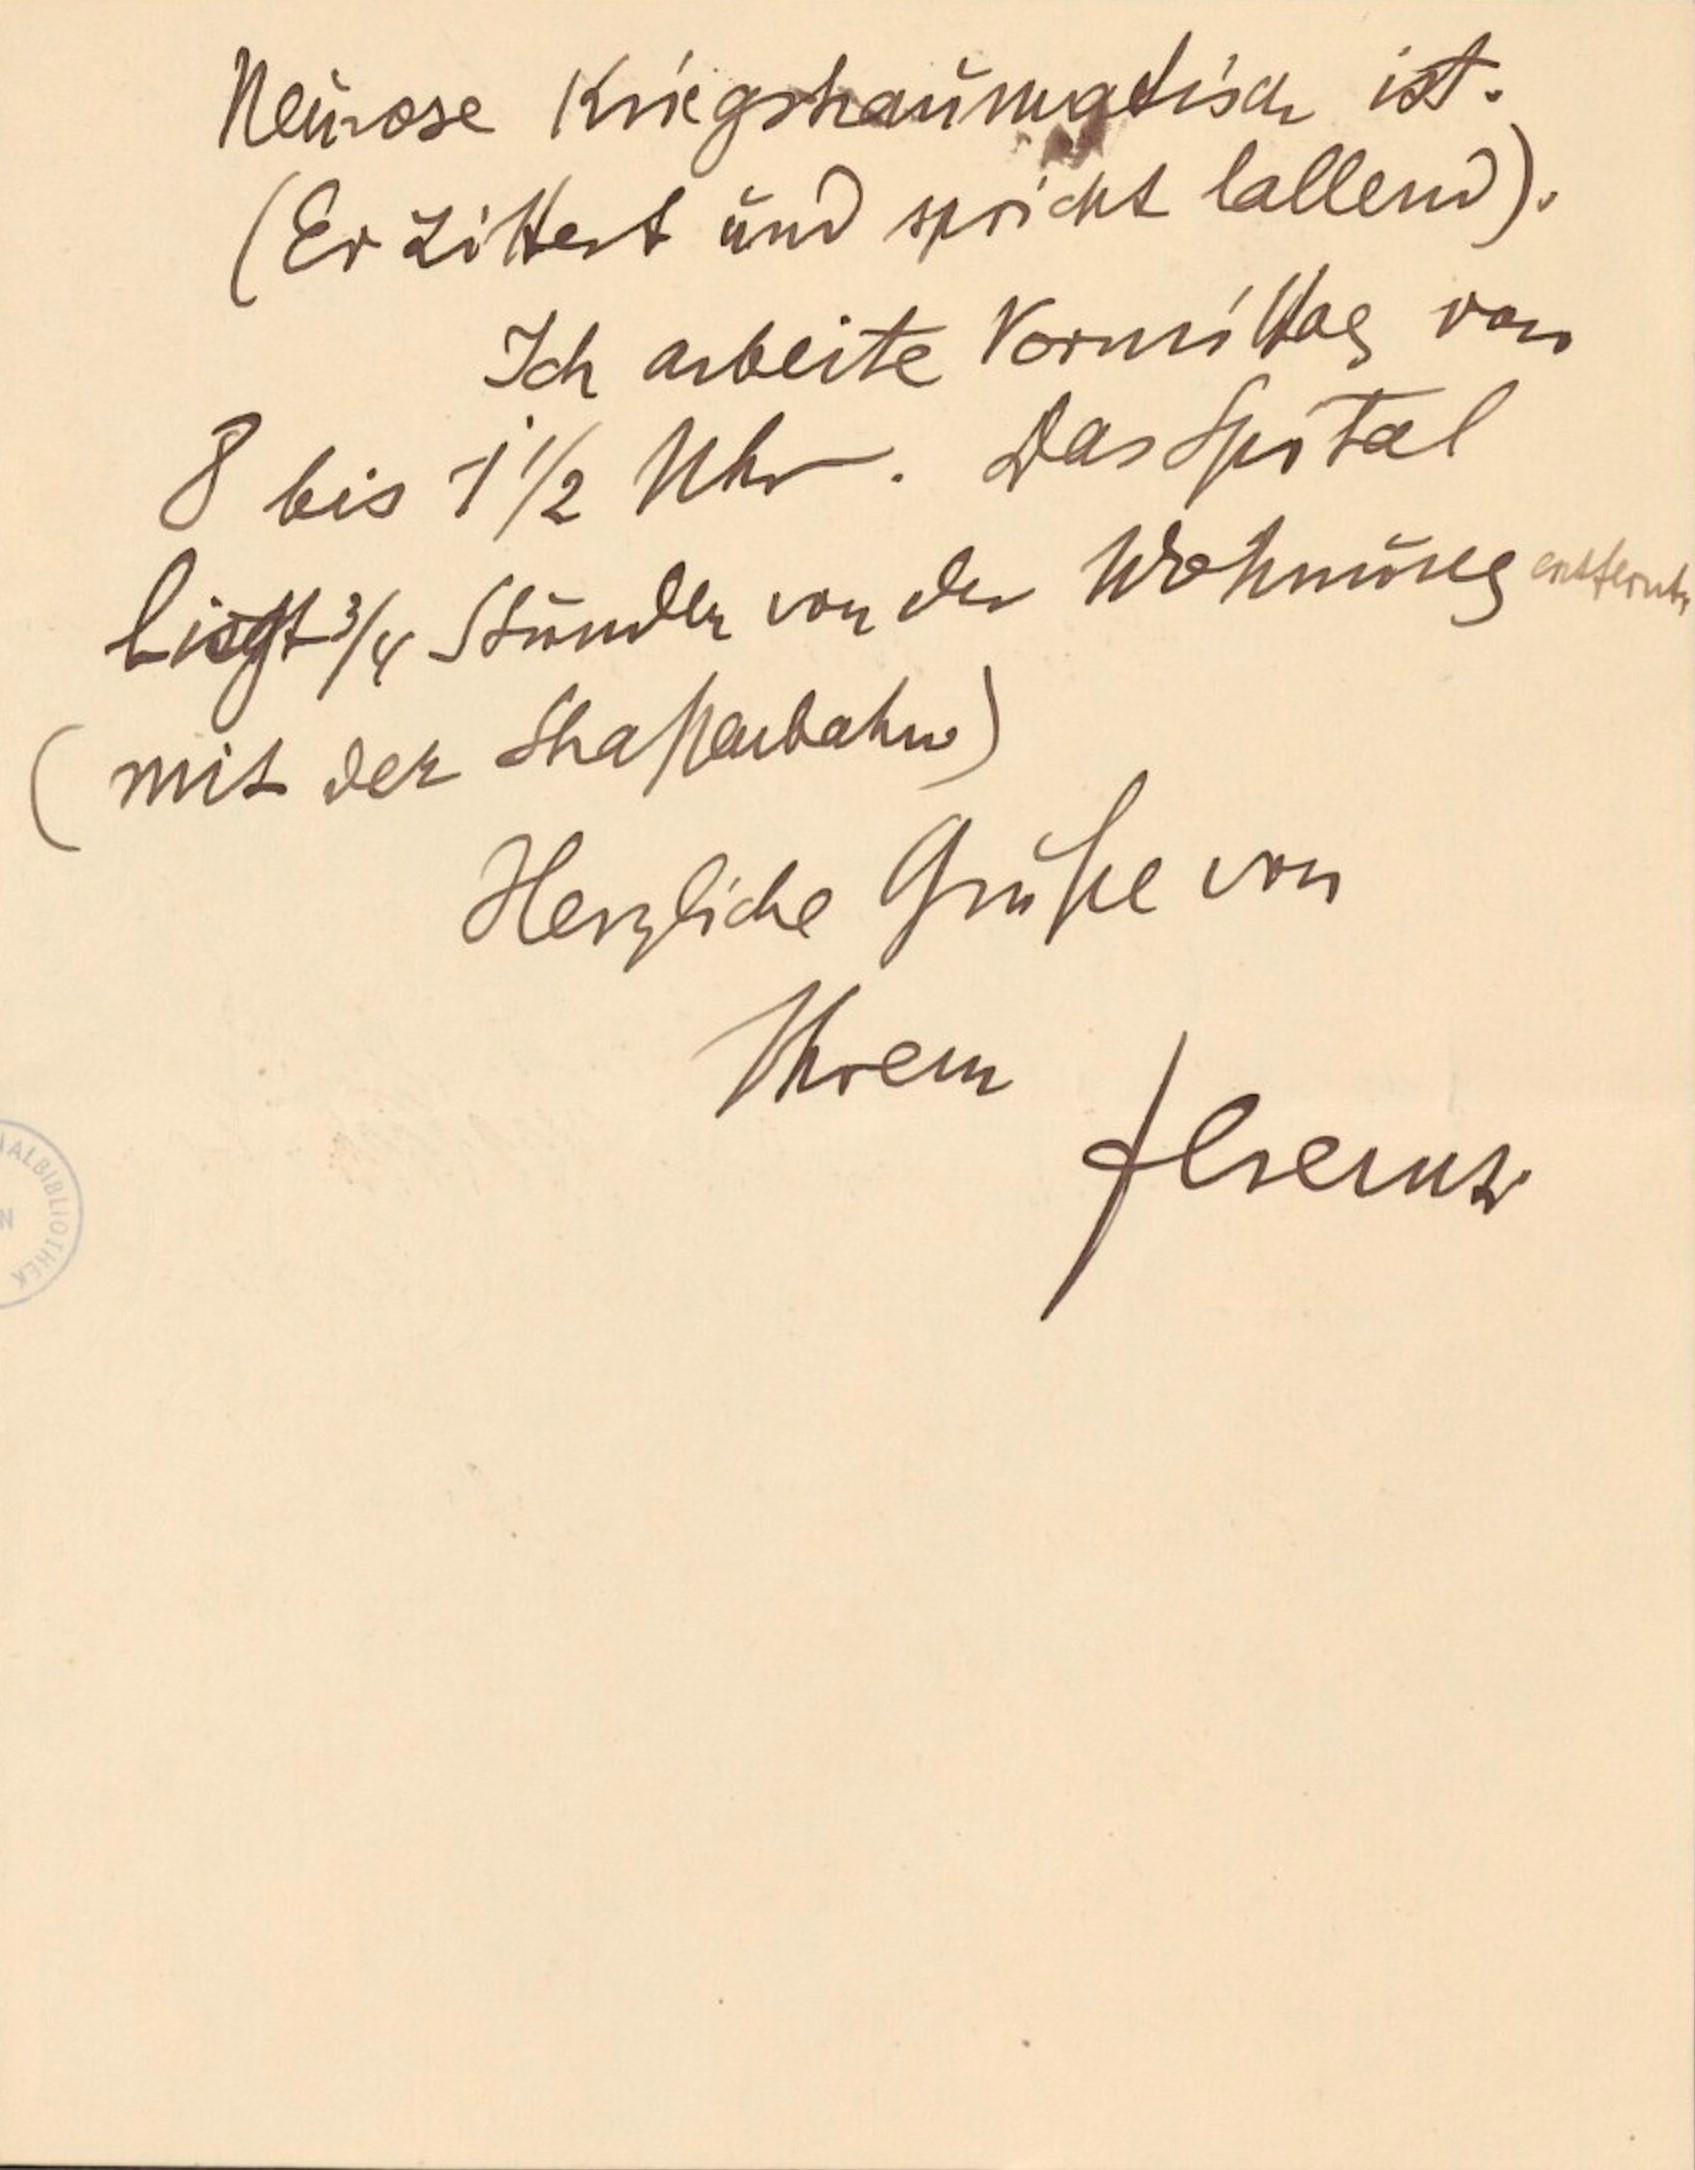 Neurose Kriegstraumatisch ist.
(Er zittert und spricht lallend).
Ich arbeite Vormittag von
8 bis 1 1/2 Uhr. Das Spital
liegt 3/4 Stunden von der Wohnung entfernt
(mit der Straßenbahn)
Herzliche Grüße von
Ihrem
ALBIBLIOTHEK
N